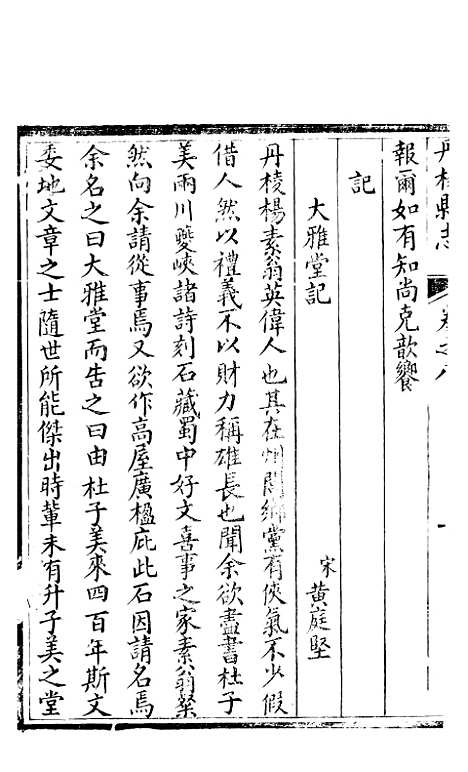 丹棱縣志 卷之八
報爾如有知尚克歆饗
記
大雅堂記 宋 黃庭堅
丹棱楊素翁英偉人也其在州閭鄉黨有俠氣不少假
借人然以禮義不以財力稱雄長也聞余欲盡書杜子
美兩川夔峽諸詩刻石藏蜀中好文喜事之家素翁粲
然向余請從事焉又欲作高屋廣楹庇此石因請名焉
余名之曰大雅堂而告之曰由杜子美來四百年斯文
委地文章之士隨世所能傑出時輩未有升子美之堂